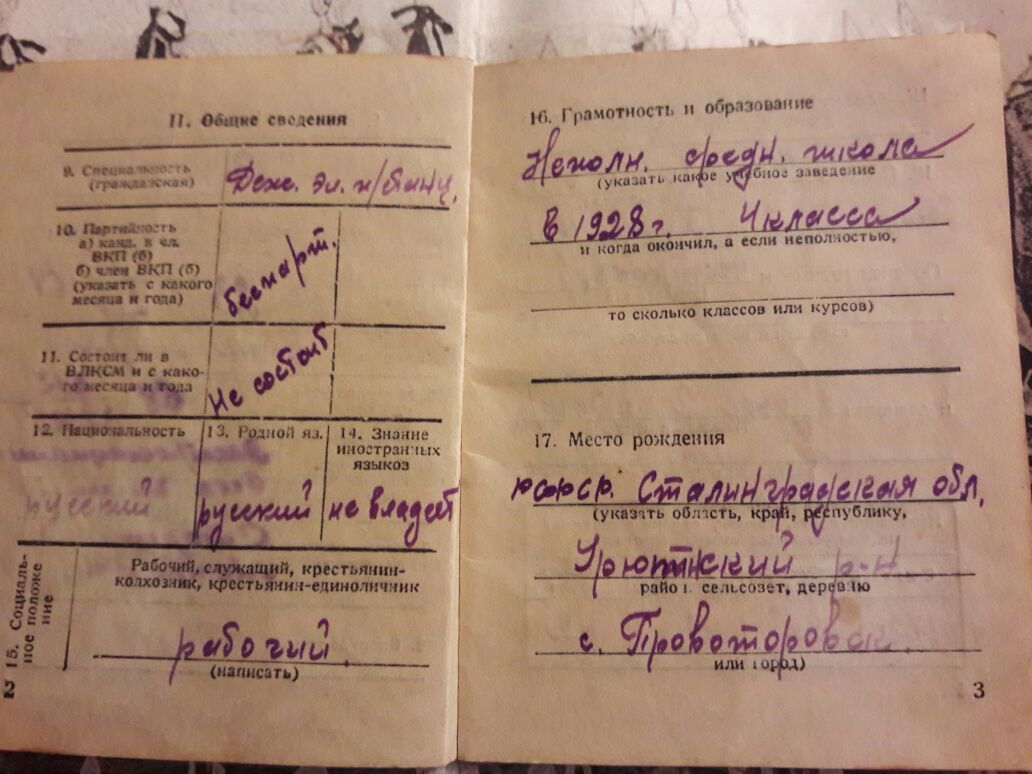 11. Общие сведения
9. Специальность
(гражданская)
Деж. эл. п/станц.
10. Партийность
а) канд. в чл.
ВКП (б)
б) член ВКП (б)
(указать с какого
месяца и года)
беспарт.
11. Состоит ли в
ВЛКСМ и с како-
го месяца и года
Не состоит
12. Национальность
русский
13. Родной яз.
русский
14. Знание
иностранных
языков
не владеет
15. Социаль-
ное положе
ние
Рабочий, служащий, крестьянин-
колхозник, крестьянин-единоличник
рабочий
(написать)
2
16. Грамотность и образование
Неполн. средн. школа
(указать какое учебное заведение
в 1928 г. 4 класса
и когда окончил, а если неполностью,
то сколько классов или курсов)
17. Место рождения
РСФСР. Сталинградская обл,
(указать область, край, республику,
Урюпский р-н
район, сельсовет, деревню
с. Провоторовск.
или город)
3